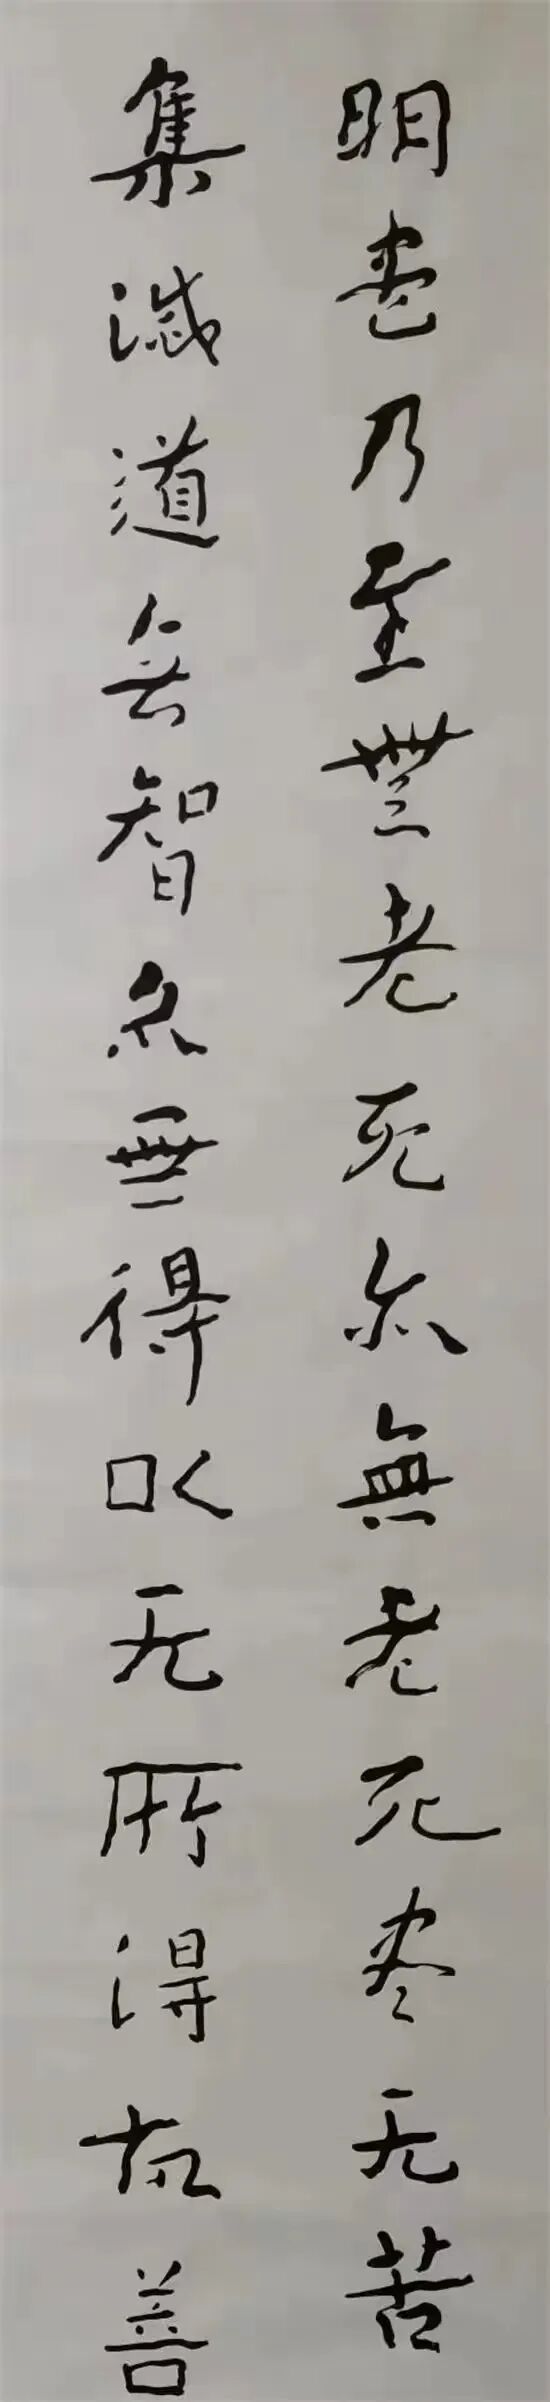 明盡乃至無老死亦無老死尽无苦
集滅道無智亦無得以无所得故菩